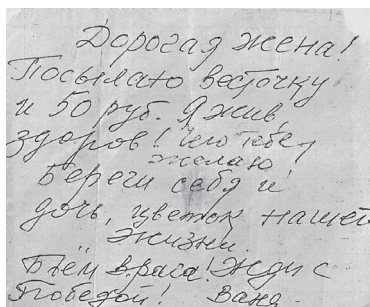 Дорогая жена!
Посылаю весточку
и 50 руб. Я жив,
здоров! Чего тебе
желаю
Береги себя и
дочь, цветок нашей
жизни.
Бьём врага! Жди с
Победой! Ваня